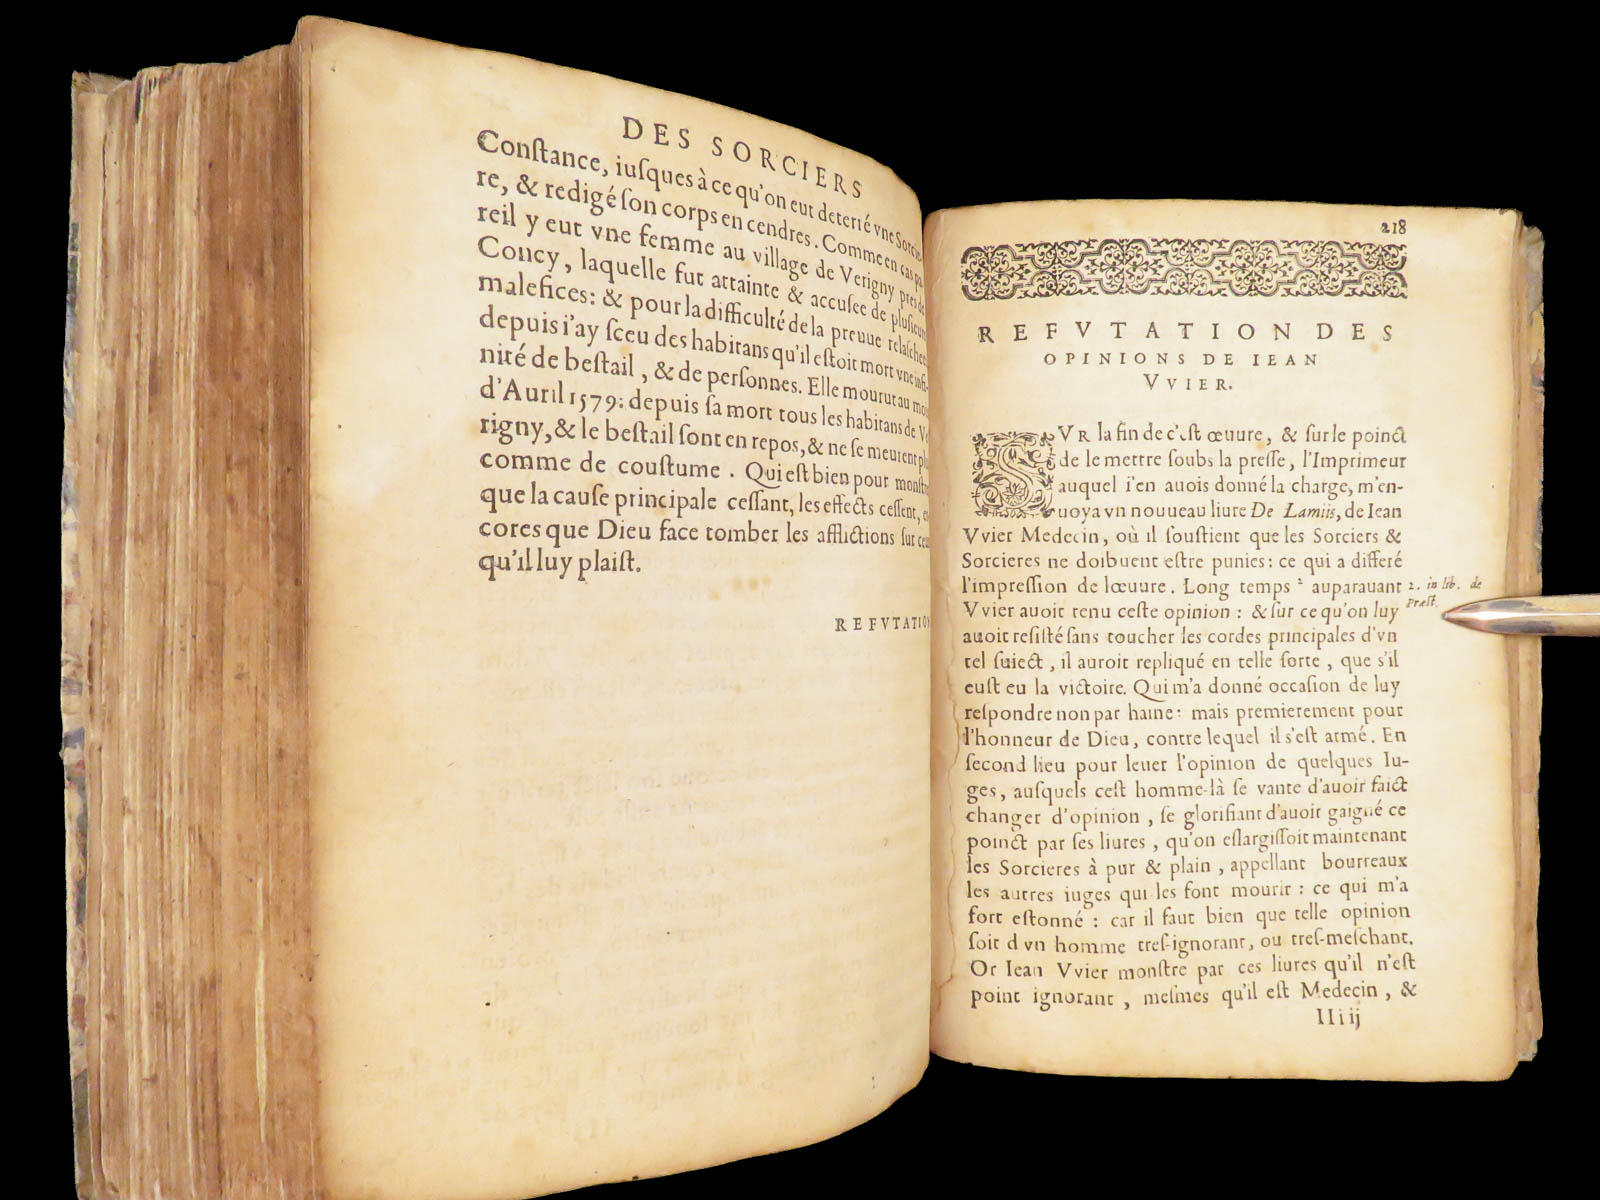 DES SORCIERS
Conſtance, iuſques à ce qu'on eut deterré vne Sorcie-
re, & redigé ſon corps en cendres. Comme en cas pa-
reil y eut vne femme au village de Verigny pres de
Concy, laquelle fut attainte & accuſee de pluſieurs
malefices: & pour la difficulté de la preuue relaſchee:
depuis i'ay ſceu des habitans qu'il eſtoit mort vne infi-
nité de beſtail, & de perſonnes. Elle mourut au mois
d'Auril 1579: depuis ſa mort tous les habitans de Ve-
rigny, & le beſtail ſont en repos, & ne ſe meurent plus
comme de couſtume. Qui eſt bien pour monſtrer
que la cauſe principale ceſſant, les effects ceſſent,
cores que Dieu face tomber les afflictions ſur ceux
qu'il luy plaiſt.
REFVTATION
218
REFVTATION DES
OPINIONS DE IEAN
VVIER.
SVR la fin de c'eſt œuure, & ſur le poinct
de le mettre ſoubs la preſſe, l'Imprimeur
auquel i'en auois donné la charge, m'en-
uoya vn nouueau liure De Lamiis, de Iean
Vvier Medecin, où il ſouſtient que les Sorciers &
Sorcieres ne doibuent eſtre punies: ce qui a differé
l'impreſſion de lœuure. Long temps 2 auparauant
2. in lib. de
Præſt.
Vvier auoit tenu ceſte opinion: & ſur ce qu'on luy
auoit reſiſté ſans toucher les cordes principales d'vn
tel ſuiect, il auroit repliqué en telle ſorte, que s'il
euſt eu la victoire. Qui m'a donné occaſion de luy
reſpondre non par haine: mais premierement pour
l'honneur de Dieu, contre lequel il s'eſt armé. En
ſecond lieu pour leuer l'opinion de quelques Iu-
ges, auſquels ceſt homme-là ſe vante d'auoir faict
changer d'opinion, ſe glorifiant d'auoir gaigné ce
poinct par ſes liures, qu'on eſlargiſſoit maintenant
les Sorcieres à pur & plain, appellant bourreaux
les autres iuges qui les font mourir: ce qui m'a
fort eſtonné: car il faut bien que telle opinion
ſoit d vn homme treſ-ignorant, ou treſ-meſchant.
Or Iean Vvier monſtre par ces liures qu'il n'eſt
point ignorant, meſmes qu'il eſt Medecin, &
IIi ij